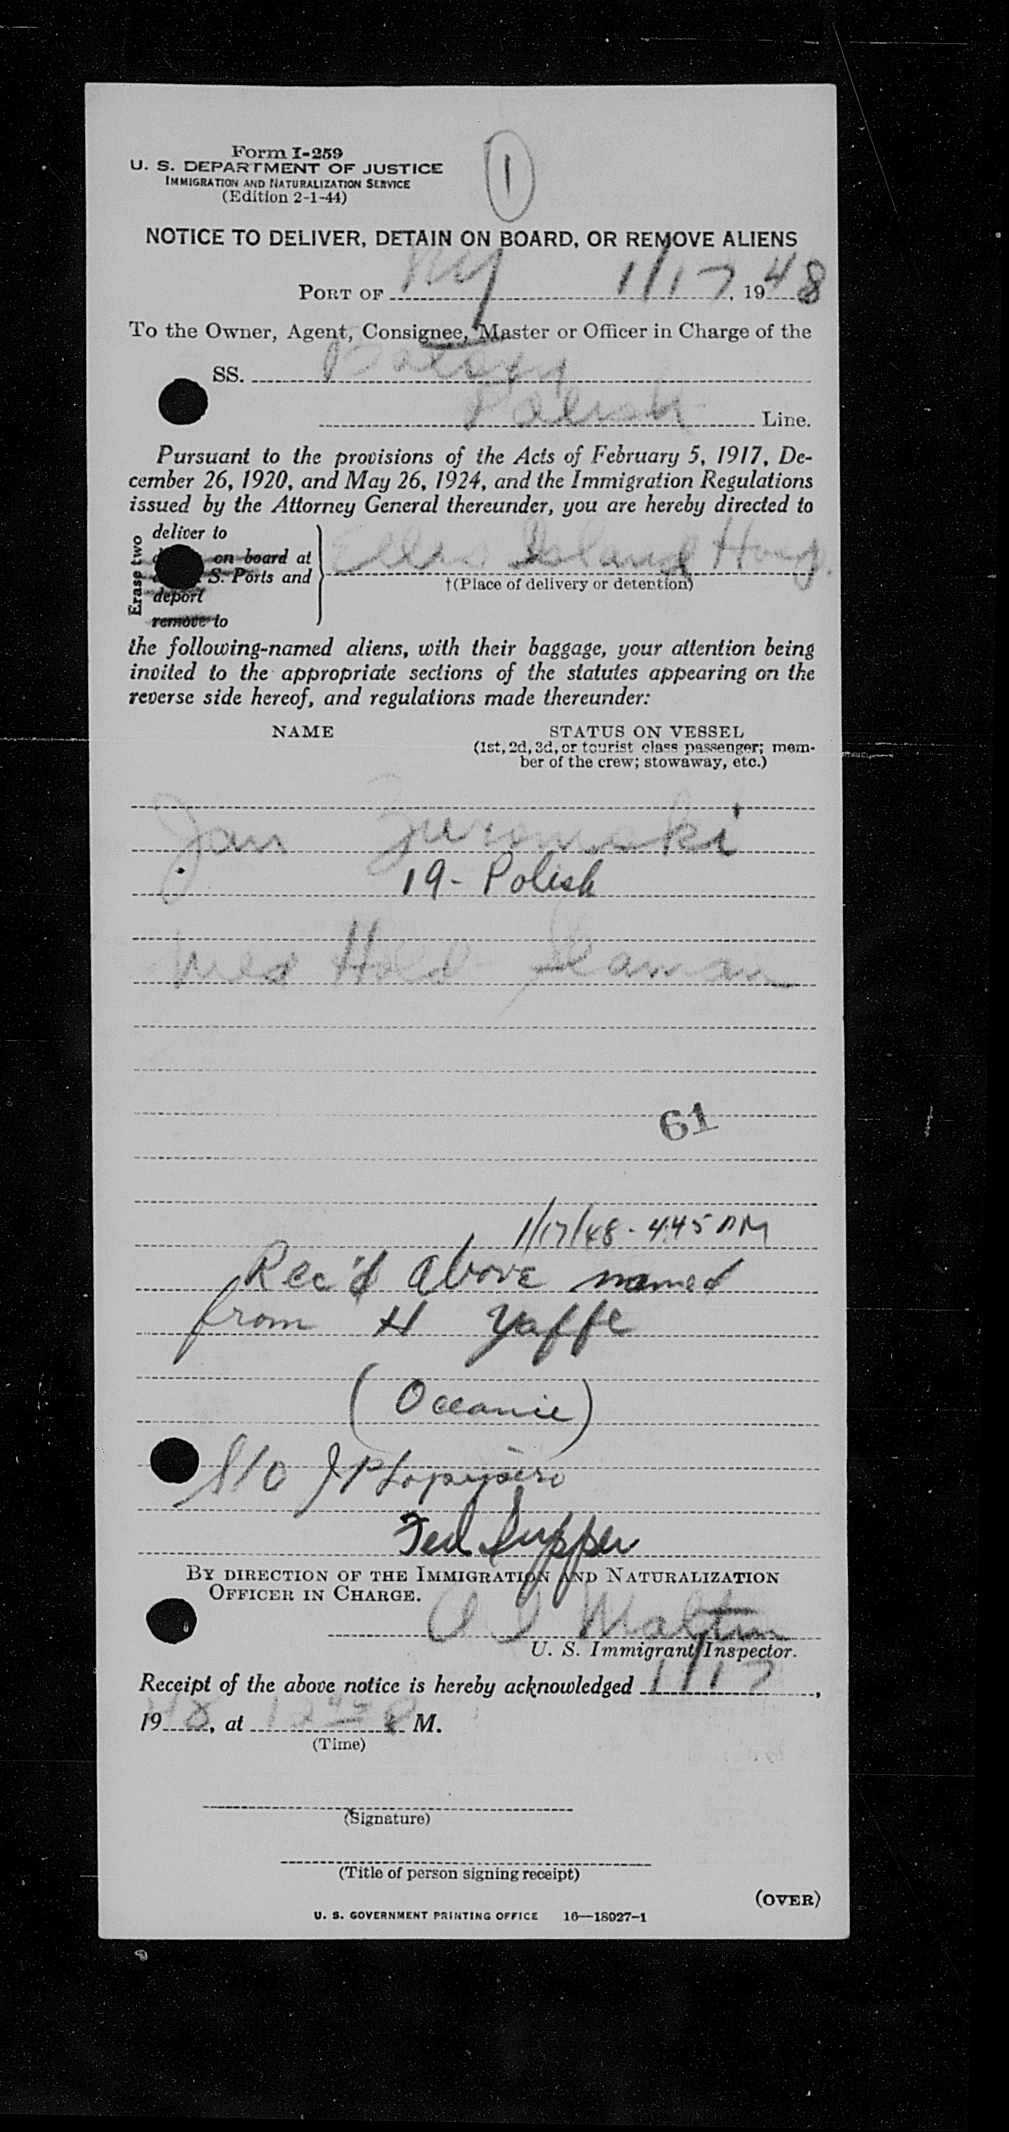 Form I-259
U. S. DEPARTMENT OF JUSTICE
IMMIGRATION AND NATURALIZATION SERVICE
(Edition 2-1-44)
1
NOTICE TO DELIVER, DETAIN ON BOARD, OR REMOVE ALIENS
PORT OF NY 1/17, 1948
To the Owner, Agent, Consignee, Master or Officer in Charge of the
SS. Batory
Polish Line.
Pursuant to the provisions of the Acts of February 5, 1917, De-
cember 26, 1920, and May 26, 1924, and the Immigration Regulations
issued by the Attorney General thereunder, you are hereby directed to
Erase two
deliver to
on board at
S. Ports and
deport
remove to
Ellis Island Hosp.
†(Place of delivery or detention)
the following-named aliens, with their baggage, your attention being
invited to the appropriate sections of the statutes appearing on the
reverse side hereof, and regulations made thereunder:
NAME STATUS ON VESSEL
(1st, 2d, 3d, or tourist class passenger; mem-
ber of the crew; stowaway, etc.)
Jan Zuromski
19 - Polish
Med Hold Seaman
61
1/17/48 - 445 PM
Rec'd above named
from H Yaffe
(Oceanic)
S/O
Ted Supper
BY DIRECTION OF THE IMMIGRATION AND NATURALIZATION
OFFICER IN CHARGE.
U. S. Immigrant Inspector.
Receipt of the above notice is hereby acknowledged 1/17,
1948, at 12 45 P M.
(Time)
(Signature)
(Title of person signing receipt)
(OVER)
U. S. GOVERNMENT PRINTING OFFICE 16—18027-1